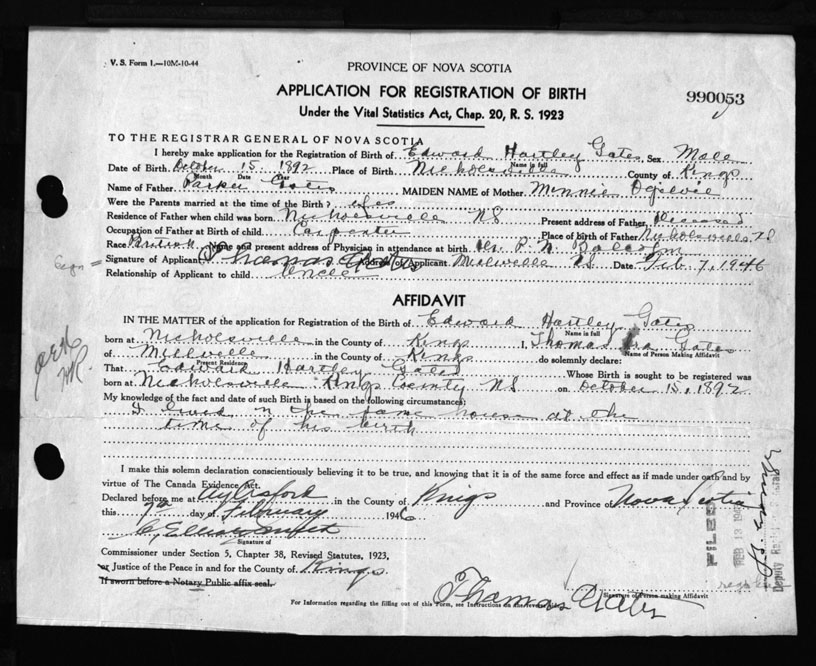 V. S. Form 1.—10M-10-44
PROVINCE OF NOVA SCOTIA
APPLICATION FOR REGISTRATION OF BIRTH
990053
Under the Vital Statistics Act, Chap. 20, R. S. 1923
TO THE REGISTRAR GENERAL OF NOVA SCOTIA
I hereby make application for the Registration of Birth of Edward Hartley Gates Sex Male
Name in full
Date of Birth October 15 1892 Place of Birth Nicholsville County of Kings
Month Date Year
Name of Father Parker Gates MAIDEN NAME of Mother Minnie Ogilvie
Were the Parents married at the time of the Birth? Yes
Residence of Father when child was born Nicholsville NS Present address of Father Deceased
Occupation of Father at Birth of child Carpenter Place of birth of Father Nicholsville NS
Race British Name and present address of Physician in attendance at birth Dr. P. N. Balcom
Sign = Signature of Applicant Thomas Gates Address of Applicant Millville NS Date Feb 7, 1946
Relationship of Applicant to child Uncle
AFFIDAVIT
IN THE MATTER of the application for Registration of the Birth of Edward Hartley Gates
Name in full
born at Nicholsville in the County of Kings I, Thomas Ira Gates
Name of Person Making Affidavit
of Millville in the County of Kings do solemnly declare:
Present Residence
That Edward Hartley Gates Whose Birth is sought to be registered was
born at Nicholsville Kings County NS on October 15, 1892
My knowledge of the fact and date of such Birth is based on the following circumstances:
I lived in the same house at the
time of his birth
I make this solemn declaration conscientiously believing it to be true, and knowing that it is of the same force and effect as if made under oath and by
virtue of The Canada Evidence Act.
Declared before me at Aylesford in the County of Kings and Province of Nova Scotia
this 7th day of February 1946
Signature of
Commissioner under Section 5, Chapter 38, Revised Statutes, 1923,
or Justice of the Peace in and for the County of Kings
If sworn before a Notary Public affix seal.
Thomas Gates
Signature of Person making Affidavit
For Information regarding the filling out of this Form, see Instructions on the reverse
FILED
FEB 13 1946
Deputy Registrar General